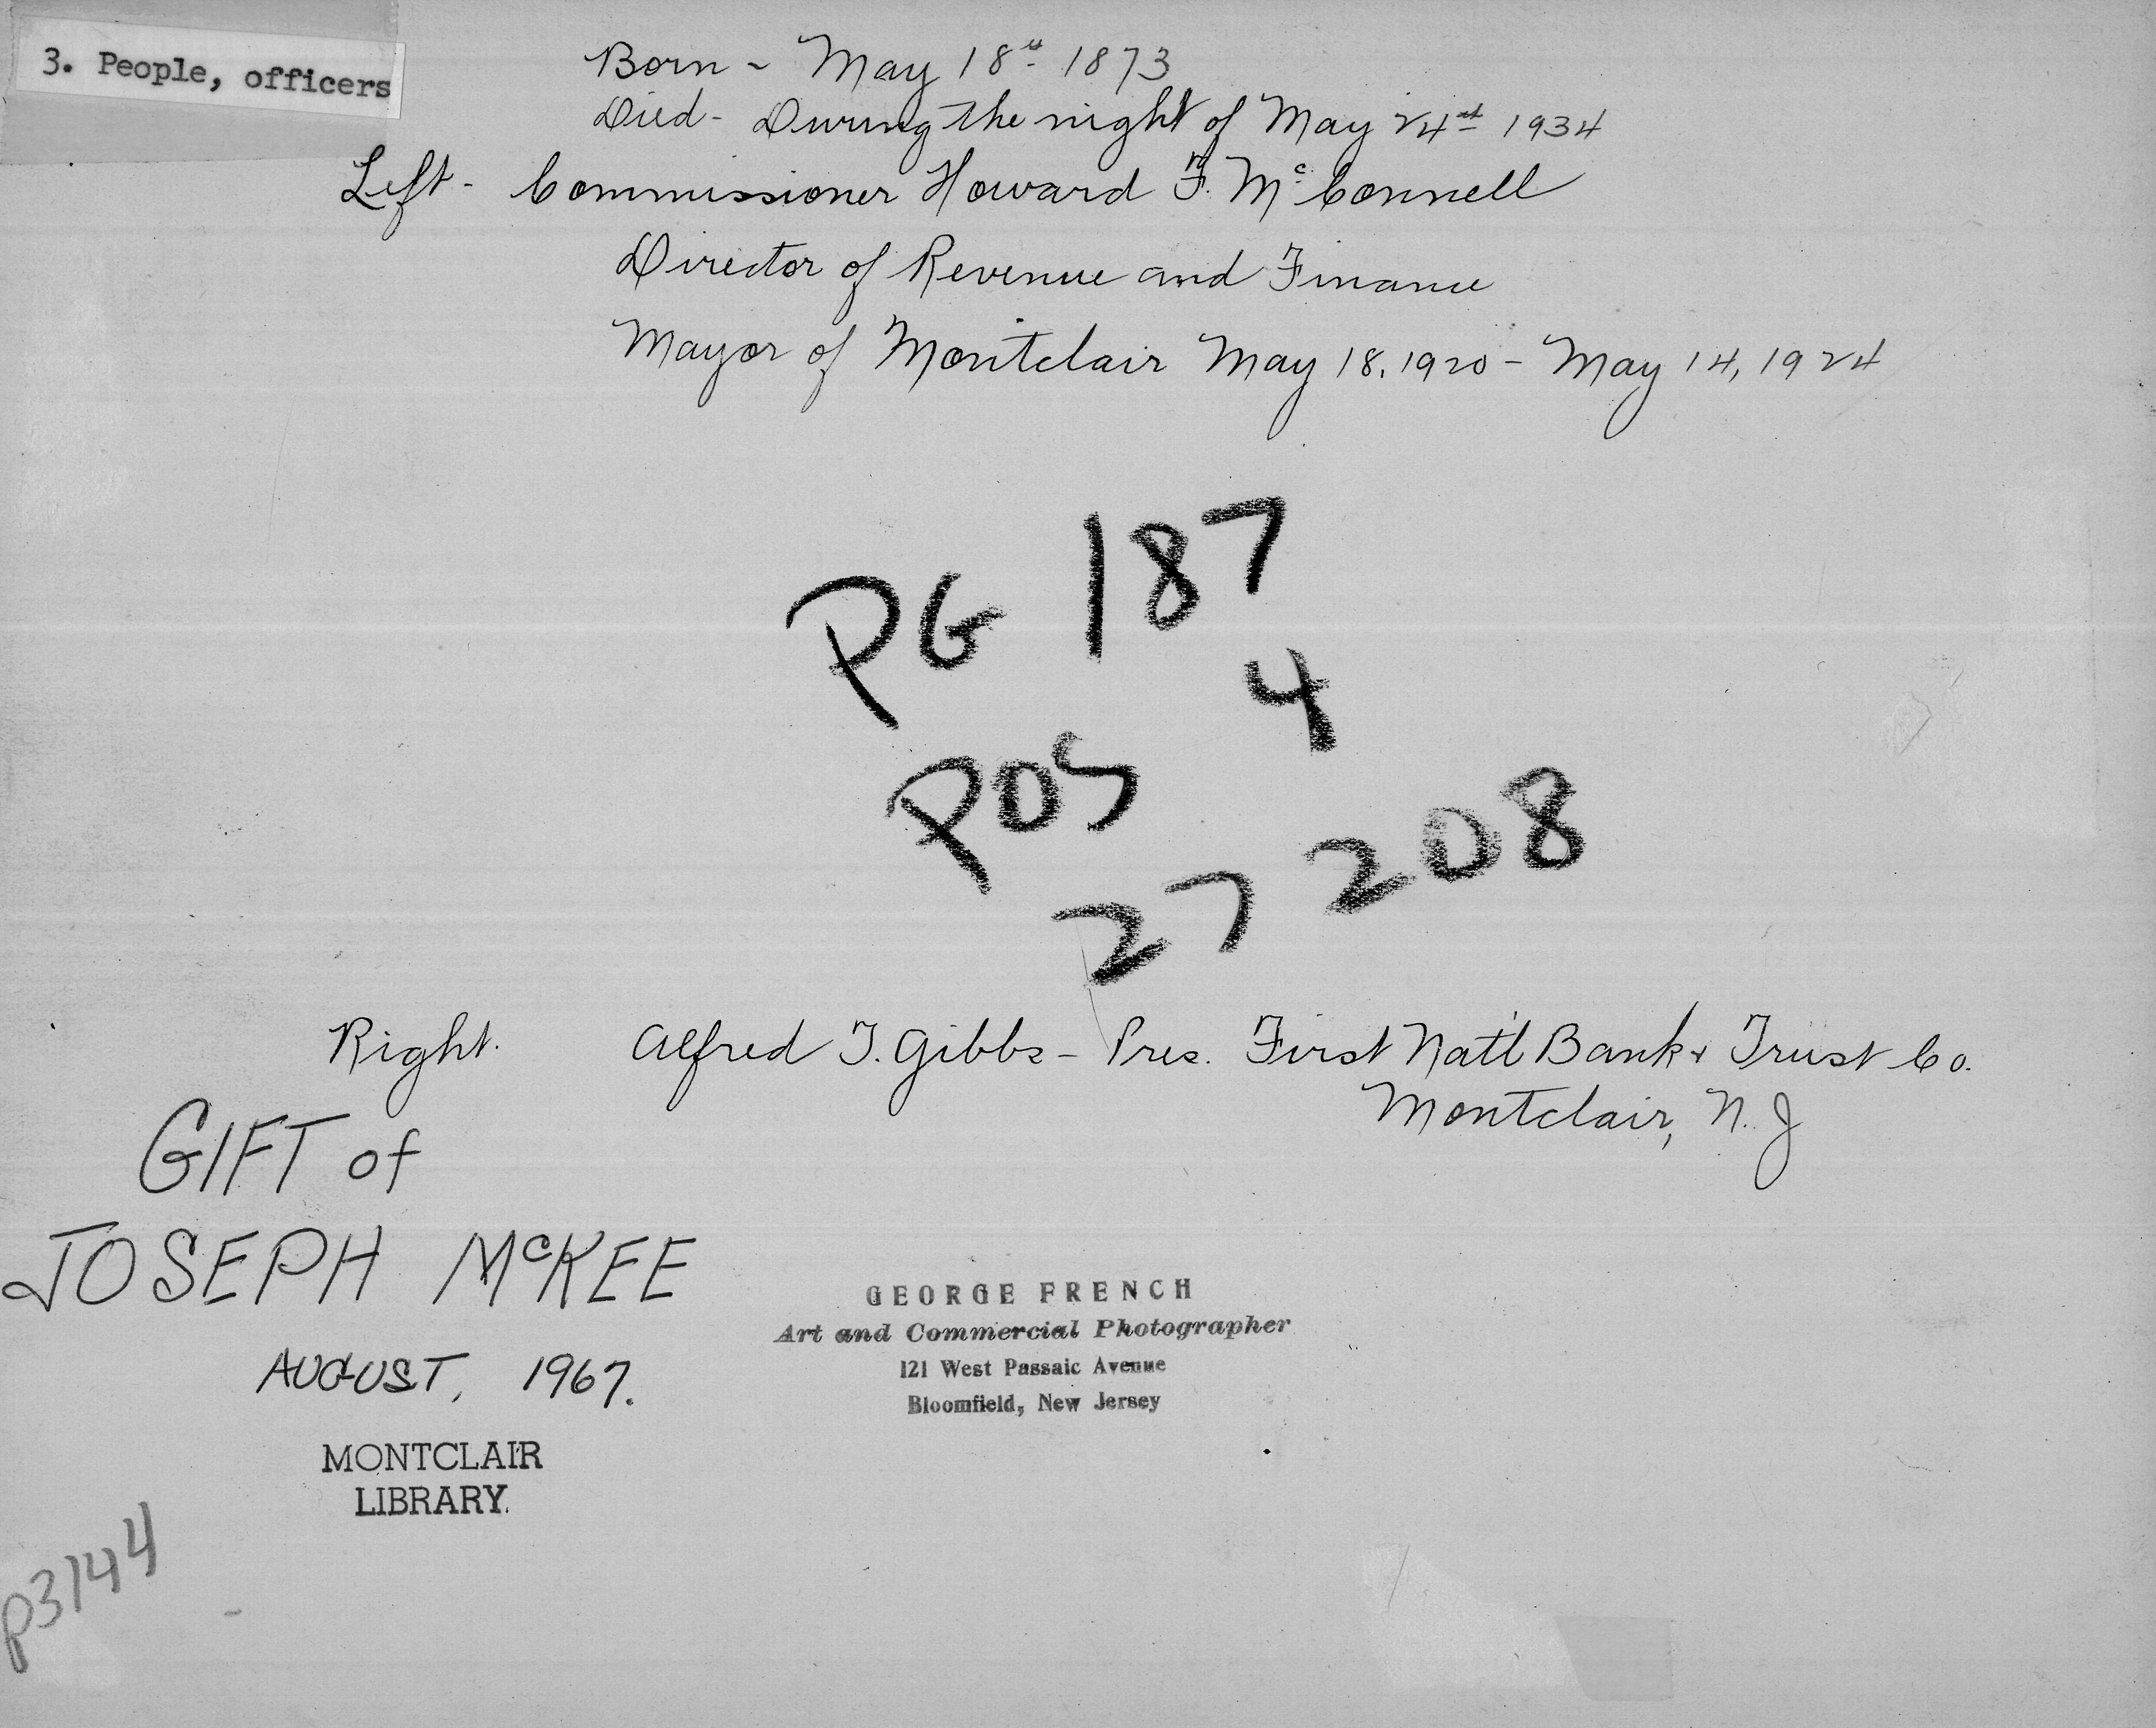 3. People, officers
Born - May 18th 1873
Died - During the night of May 24th 1934
Left - Commissioner Howard F. McConnell
Director of Revenue and Finance
Mayor of Montclair May 18, 1920 - May 14, 1924
PG 187
4
POS
27 208
Right. Alfred T. Gibbs - Pres. First Nat'l Bank & Trust Co.
Montclair, N.J
GIFT of
JOSEPH McKEE
AUGUST, 1967.
GEORGE FRENCH
Art and Commercial Photographer
121 West Passaic Avenue
Bloomfield, New Jersey
MONTCLAIR
LIBRARY.
P3144